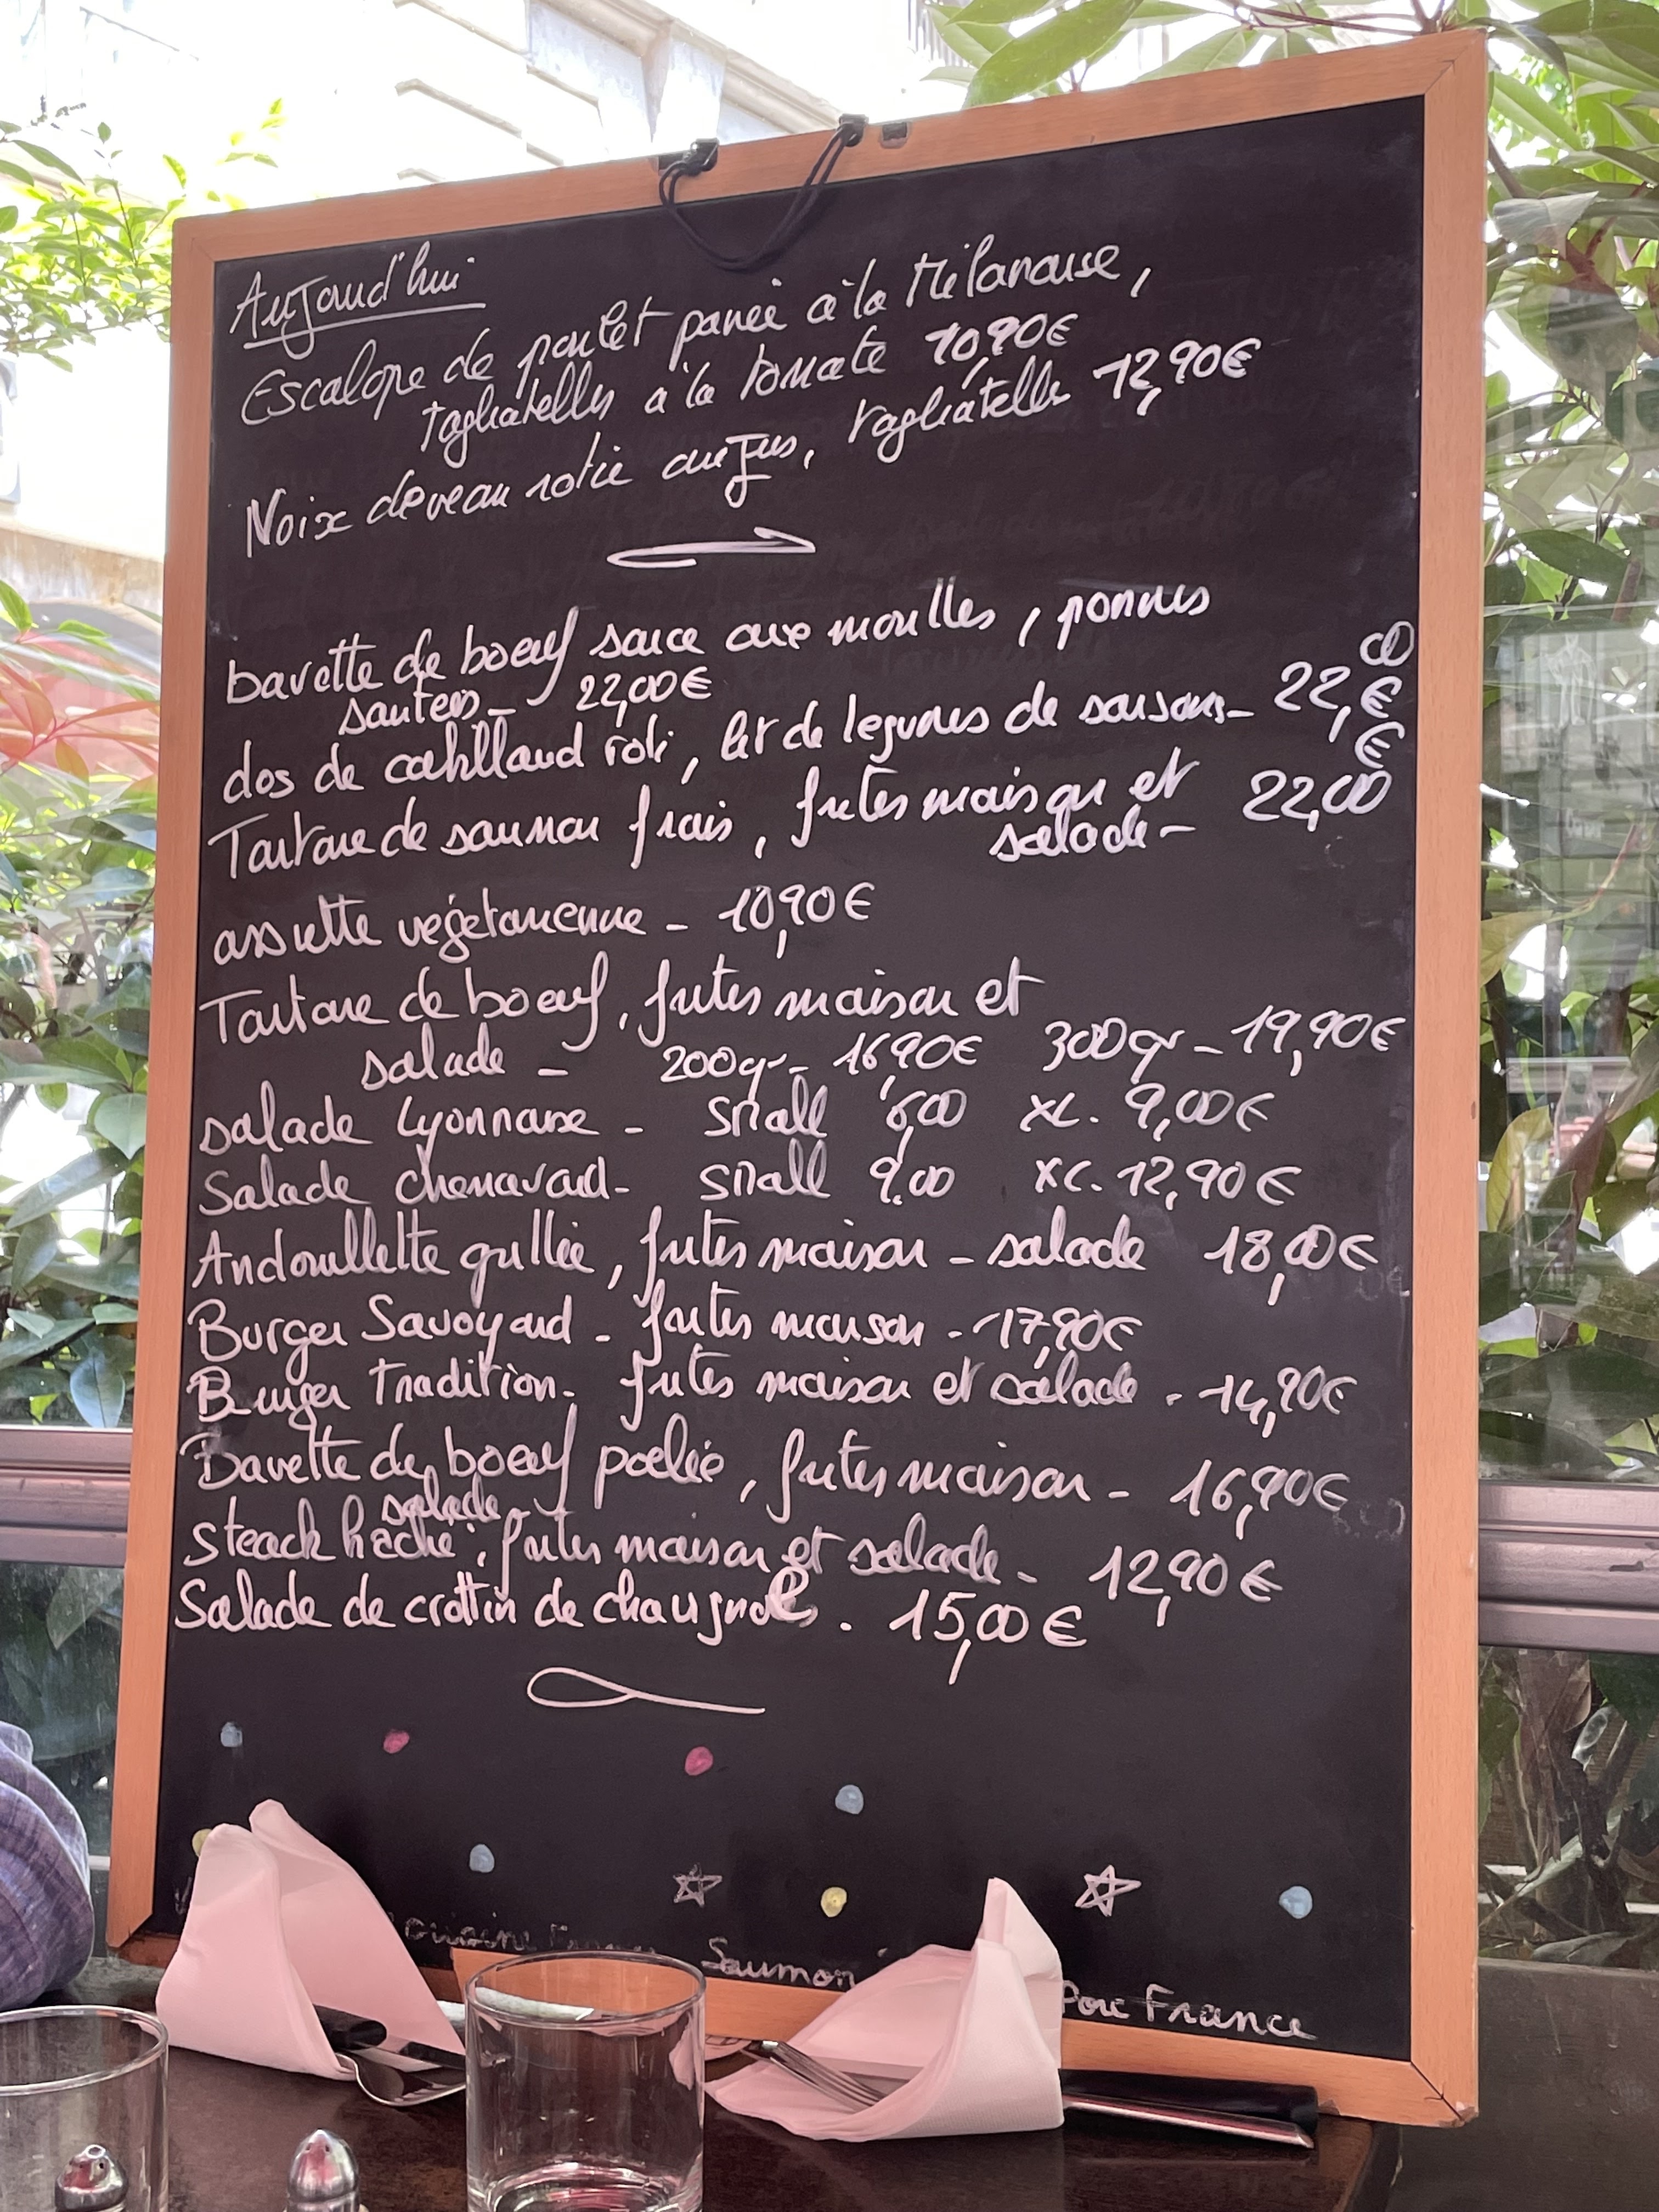 Aujourd'hui
Escalope de poulet panée à la Milanaise,
Tagliatelles à la tomate 10,90€
Noix de veau rotie au jus, tagliatelle 12,90€
bavette de boeuf sauce aux morilles, pommes
sautées - 22,00€
dos de cabillaud roti, lit de legumes de saisons - 22,00 €
Tartare de saumon frais, frites maison et
salade - 22,00 €
assiette végétarienne - 10,90€
Tartare de boeuf, frites maison et
salade - 200gr - 16,90€ 300gr - 19,90€
salade Lyonnaise - small 6,00 XL. 9,00€
Salade chenavard - small 9,00 XL. 12,90€
Andouillette grillée, frites maison - salade 18,00€
Burger Savoyard - frites maison - 17,90€
Burger Tradition - frites maison et salade - 14,90€
Bavette de boeuf poelée, frites maison - 16,90€
salade -
Steack haché, frites maison et salade - 12,90€
Salade de crottin de chavignol. 15,00€
Saumon
Porc France